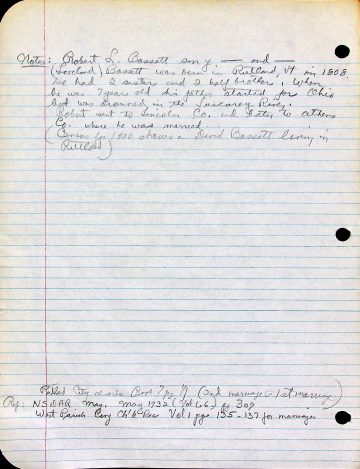 Notes: Robert L. Bassett son of — and —
(Loveland) Bassett was born in Rutland, Vt in 1808
He had 2 sisters and 2 half brothers, when
he was 7 years old his father started for Ohio
but was drowned in the Tuscaroy River.
Robert went to Lincoln Co. and later to Athens
Co. where he was married.
(Census for 1800 shows a David Bassett living in
Rutland)
City Book 7 pg (2nd marriage - 1st marriage)
Ref: NSDAR Mag. May 1932 (Vol 66) pg 309
West Parish Cong Ch'h Rec Vol 1 pgs 135-137 for marriages